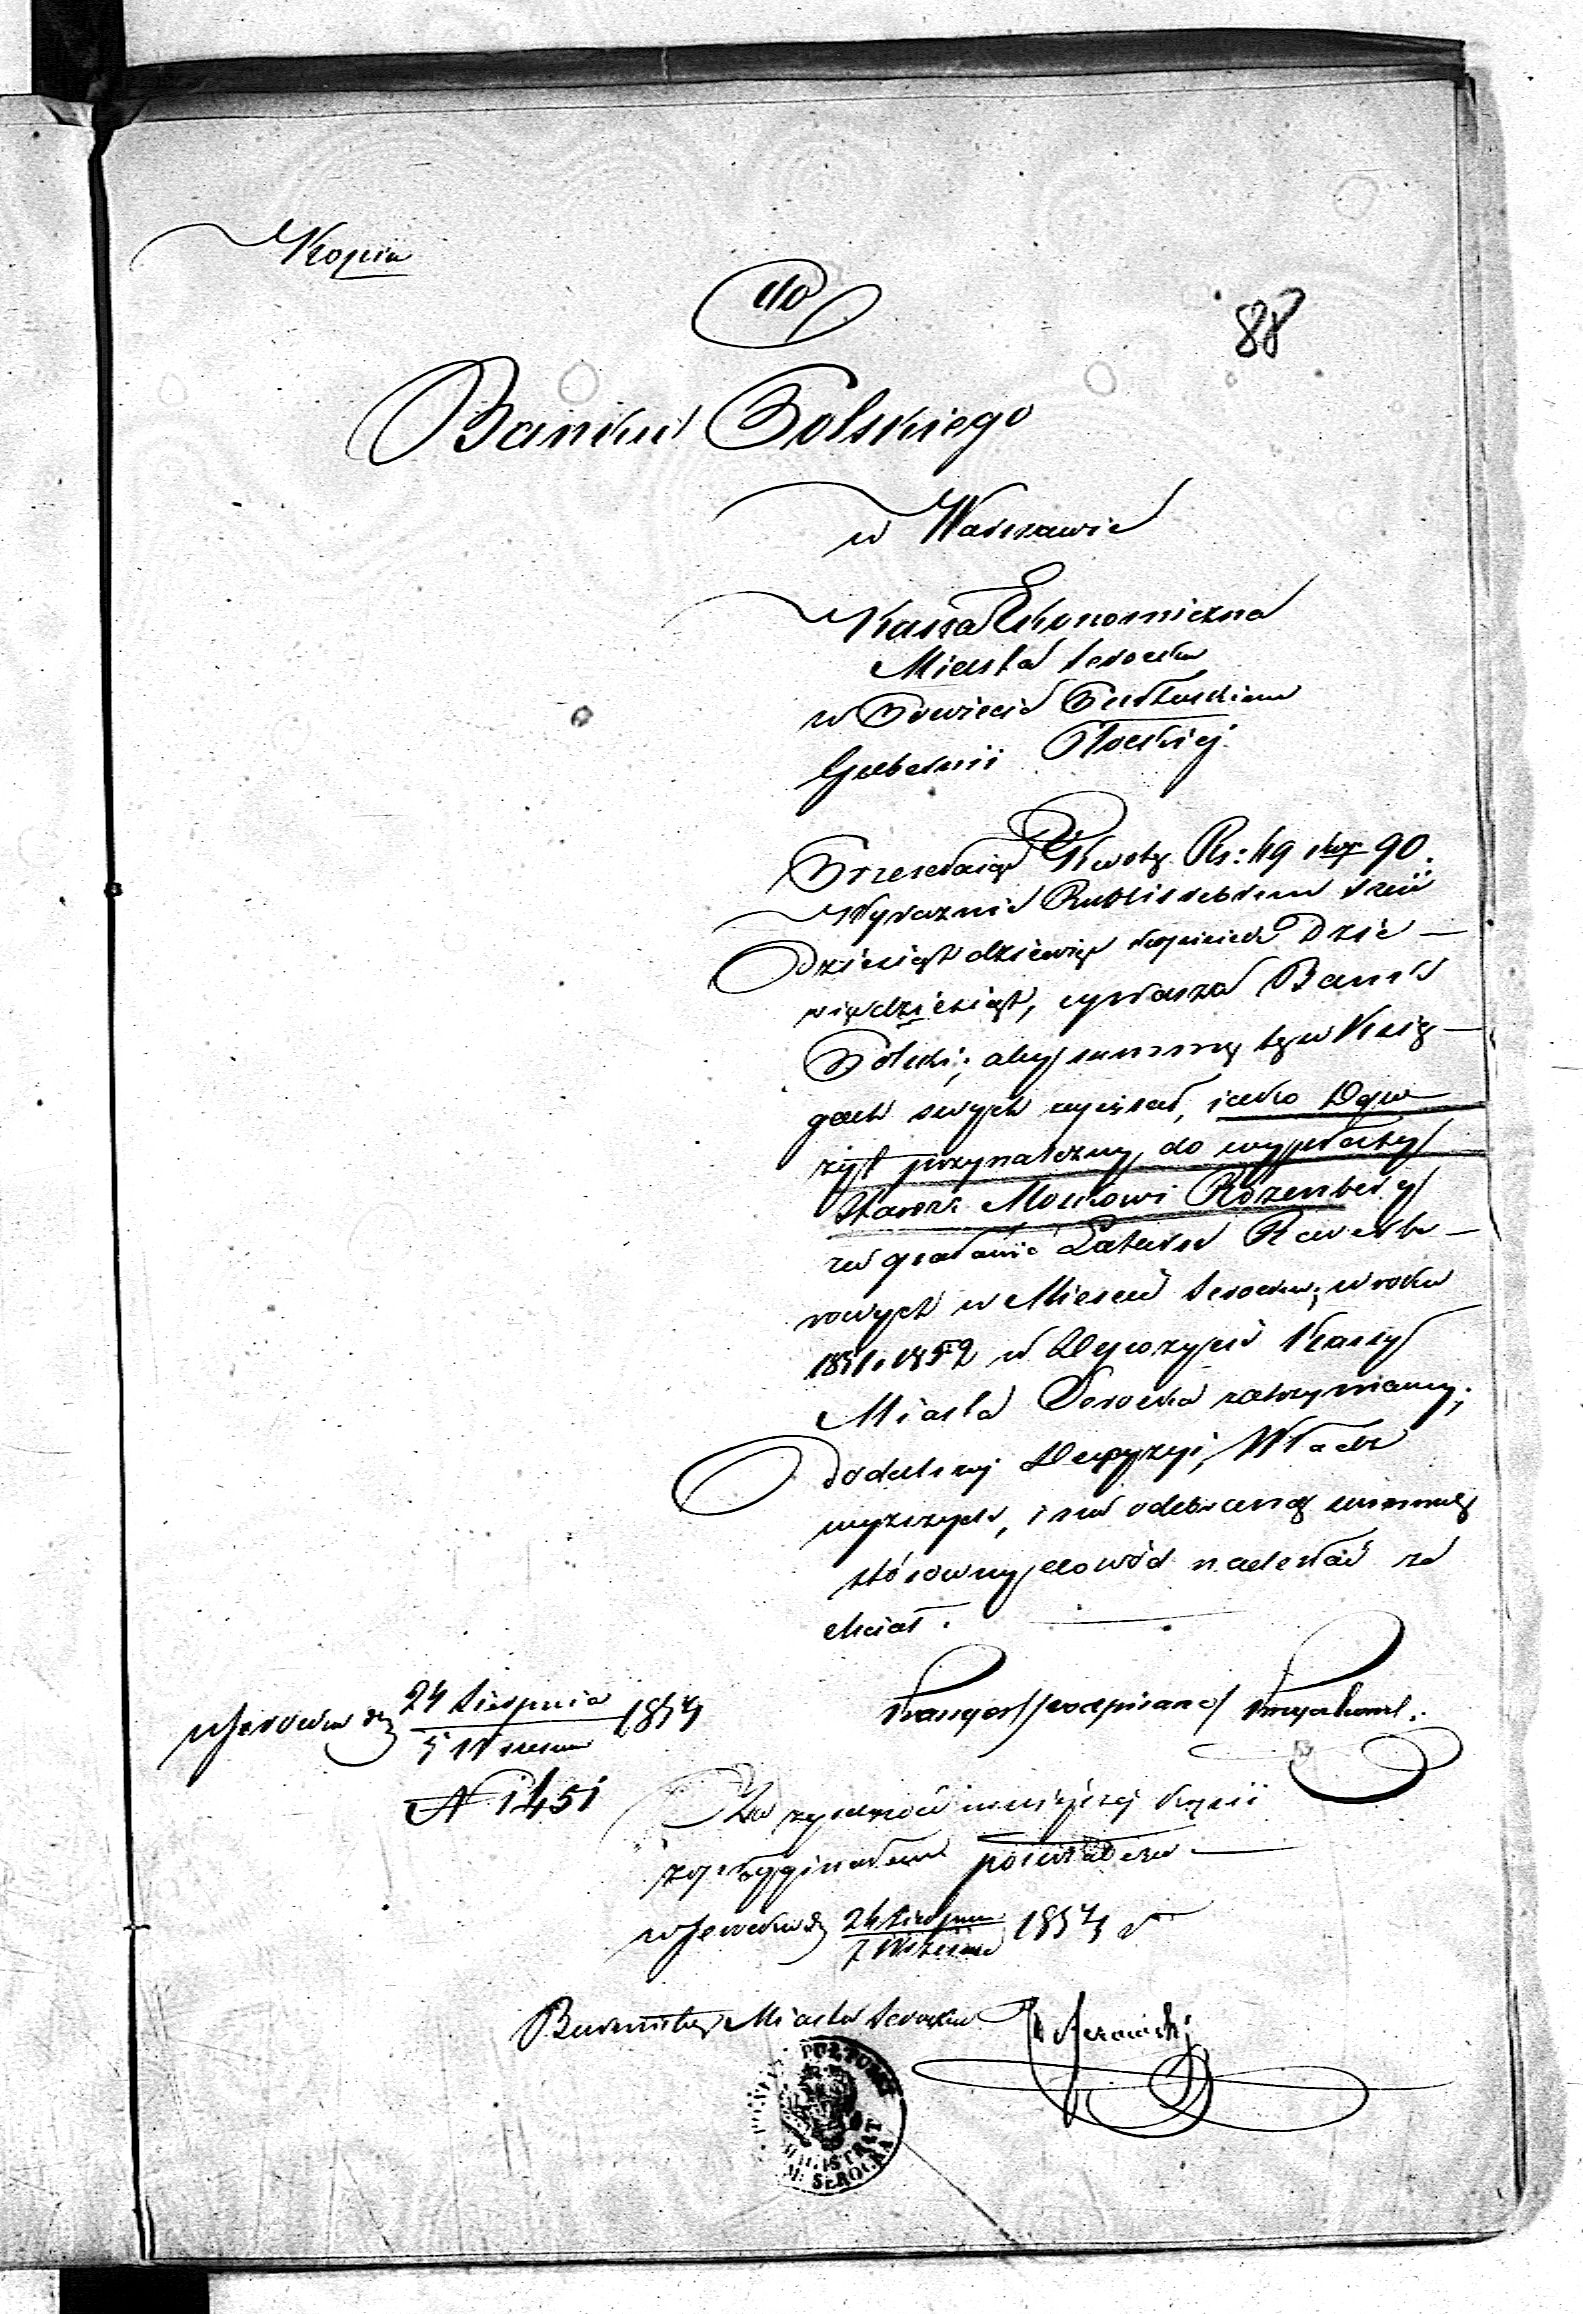 Kopia
do
88
Banku Polskiego
w Warszawie
Kassa Ekonomiczna
Miasta Serocka
w Powiecie Pułtuskiem
Gubernii Płockiej
Przesełając Kwotę Rs: 49 kop 90.
Wyraznie Rubli srebrem
dziesiąt dziewięć kopieiek Dzie-
więdziesiąt, uprasza Bank
Polski; aby summę tę w Księ-
gach swych zapisał, jako Depo-
zyt przynależny do wypłaty
Starz: Moszkowi Rozenberg
za
rowych w Mieście Serocku, w roku
1851. 1852 w Depozycie Kassy
Miasta Serocka zatrzymany;
do dalszej Decyzyi, Władz
wyższych, i na odebraną summę
stósowny dowód nadesłać ze-
chciał.
w Serocku d. 24 Sierpnia / 5 Września 1854
Kassyer /podpisano/
N 1451
Za zgodność niniejszej Kopii
z oryginałem poświadcza
w Serocku d. Sierpnia / Września 1854 r.
Burmistrz Miasta Serocka
PUŁTUSKI
MAGISTRAT
M: SEROCKA